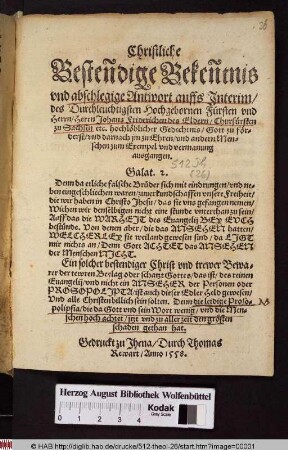 26
Christliche
Bestendige Bekentnis
vnd abschlegige Antwort auffs Interim/
des Durchleuchtigsten Hochgebornen Fürsten vnd
Herrn/Herrn Johans Friderichen des Eldern/Churfürsten
zu Sachsen etc. hochlöblicher Gedechtnis/Gott zu för=
derst/vnd darnach jm zu Ehren/vnd andern Men=
schen zum Exempel vnd vermanung
ausgangen.
Galat. 2.
512.36
(26)
Denn da etliche falsche Brüder sich mit eindrungen/vnd ne=
ben eingeschlichen waren/zuuerkundschaffen vnsere Freiheit/
die wir haben in Christo Jhesu/das sie vns gefangen nemen/
Wichen wir denselbigen nicht eine stunde vnterthan zu sein/
Auff das die WARHEIT des Euangelij BEY EVCH
bestünde. Von denen aber/die das ANSEHEN hatten/
WELCHERLEY sie weiland gewesen sein/da LIGT
mir nichts an/Denn Gott ACHTET das ANSEHEN
der Menschen NICHT.
Ein solcher bestendiger Christ vnd trewer Bewa=
rer der tewren Beylag oder schatz Gottes/das ist/des reinen
Euangelij/vnd nicht ein ANSEHER der Personen oder
PROSOPOLIPTA ist auch dieser Edler Held gewesen/
Vnd alle Christen billich sein solten. Denn die leidige Prosopo
polipsia/die da Gott vnd sein Wort wenig/vnd die Men=
schen hoch achtet/itzt vnd zu aller zeit den grösten
schaden gethan hat.
Gedruckt zu Jhena/Durch Thomas
Rewart/Anno 1558.
Herzog August Bibliothek Wolfenbüttel
Kodak
Gray Scale
© HAB http://diglib.hab.de/drucke/512-theol-26/start.htm?image=00001